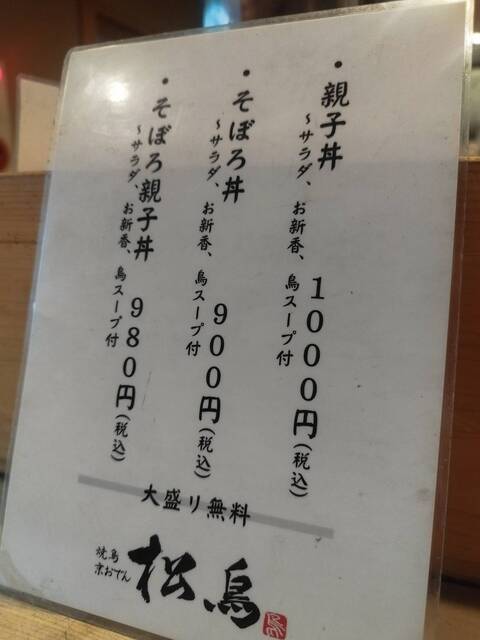 ・親子丼
～サラダ、お新香、鳥スープ付
1000円（税込）
・そぼろ丼
～サラダ、お新香、鳥スープ付
900円（税込）
・そぼろ親子丼
～サラダ、お新香、鳥スープ付
980円（税込）
大盛り無料
焼鳥
京おでん
松鳥